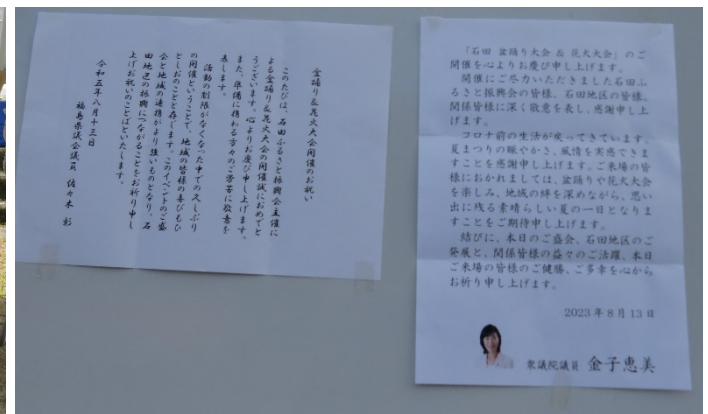 盆踊り&花火大会開催のお祝い
このたびは、石田ふるさと振興会主催に
よる盆踊り&花火大会の開催誠におめでと
うございます。心よりお慶び申し上げます。
また、準備に携わる方々のご労苦に敬意を
表します。
活動の制限がなくなった中での久しぶり
の開催ということで、地域の皆様の喜びもひ
としおのことと存じます。このイベントのご盛
会と地域の連携がより強いものとなり、石
田地区の振興につながることをお祈り申し
上げお祝いのことばといたします。
令和五年八月十三日
福島県議会議員 佐々木 彰
「石田 盆踊り大会 & 花火大会」のご
開催を心よりお慶び申し上げます。
開催にご尽力いただきました石田ふ
るさと振興会の皆様、石田地区の皆様、
関係皆様に深く敬意を表し、感謝申し上
げます。
コロナ前の生活が戻ってきています。
夏まつりの賑やかさ、風情を実感できま
すことを感謝申し上げます。ご来場の皆
様におかれましては、盆踊りや花火大会
を楽しみ、地域の絆を深めながら、思い
出に残る素晴らしい夏の一日となりま
すことをご期待申し上げます。
結びに、本日のご盛会、石田地区のご
発展と、関係皆様の益々のご活躍、本日
ご来場の皆様のご健勝、ご多幸を心から
お祈り申し上げます。
2023年8月13日
衆議院議員 金子恵美